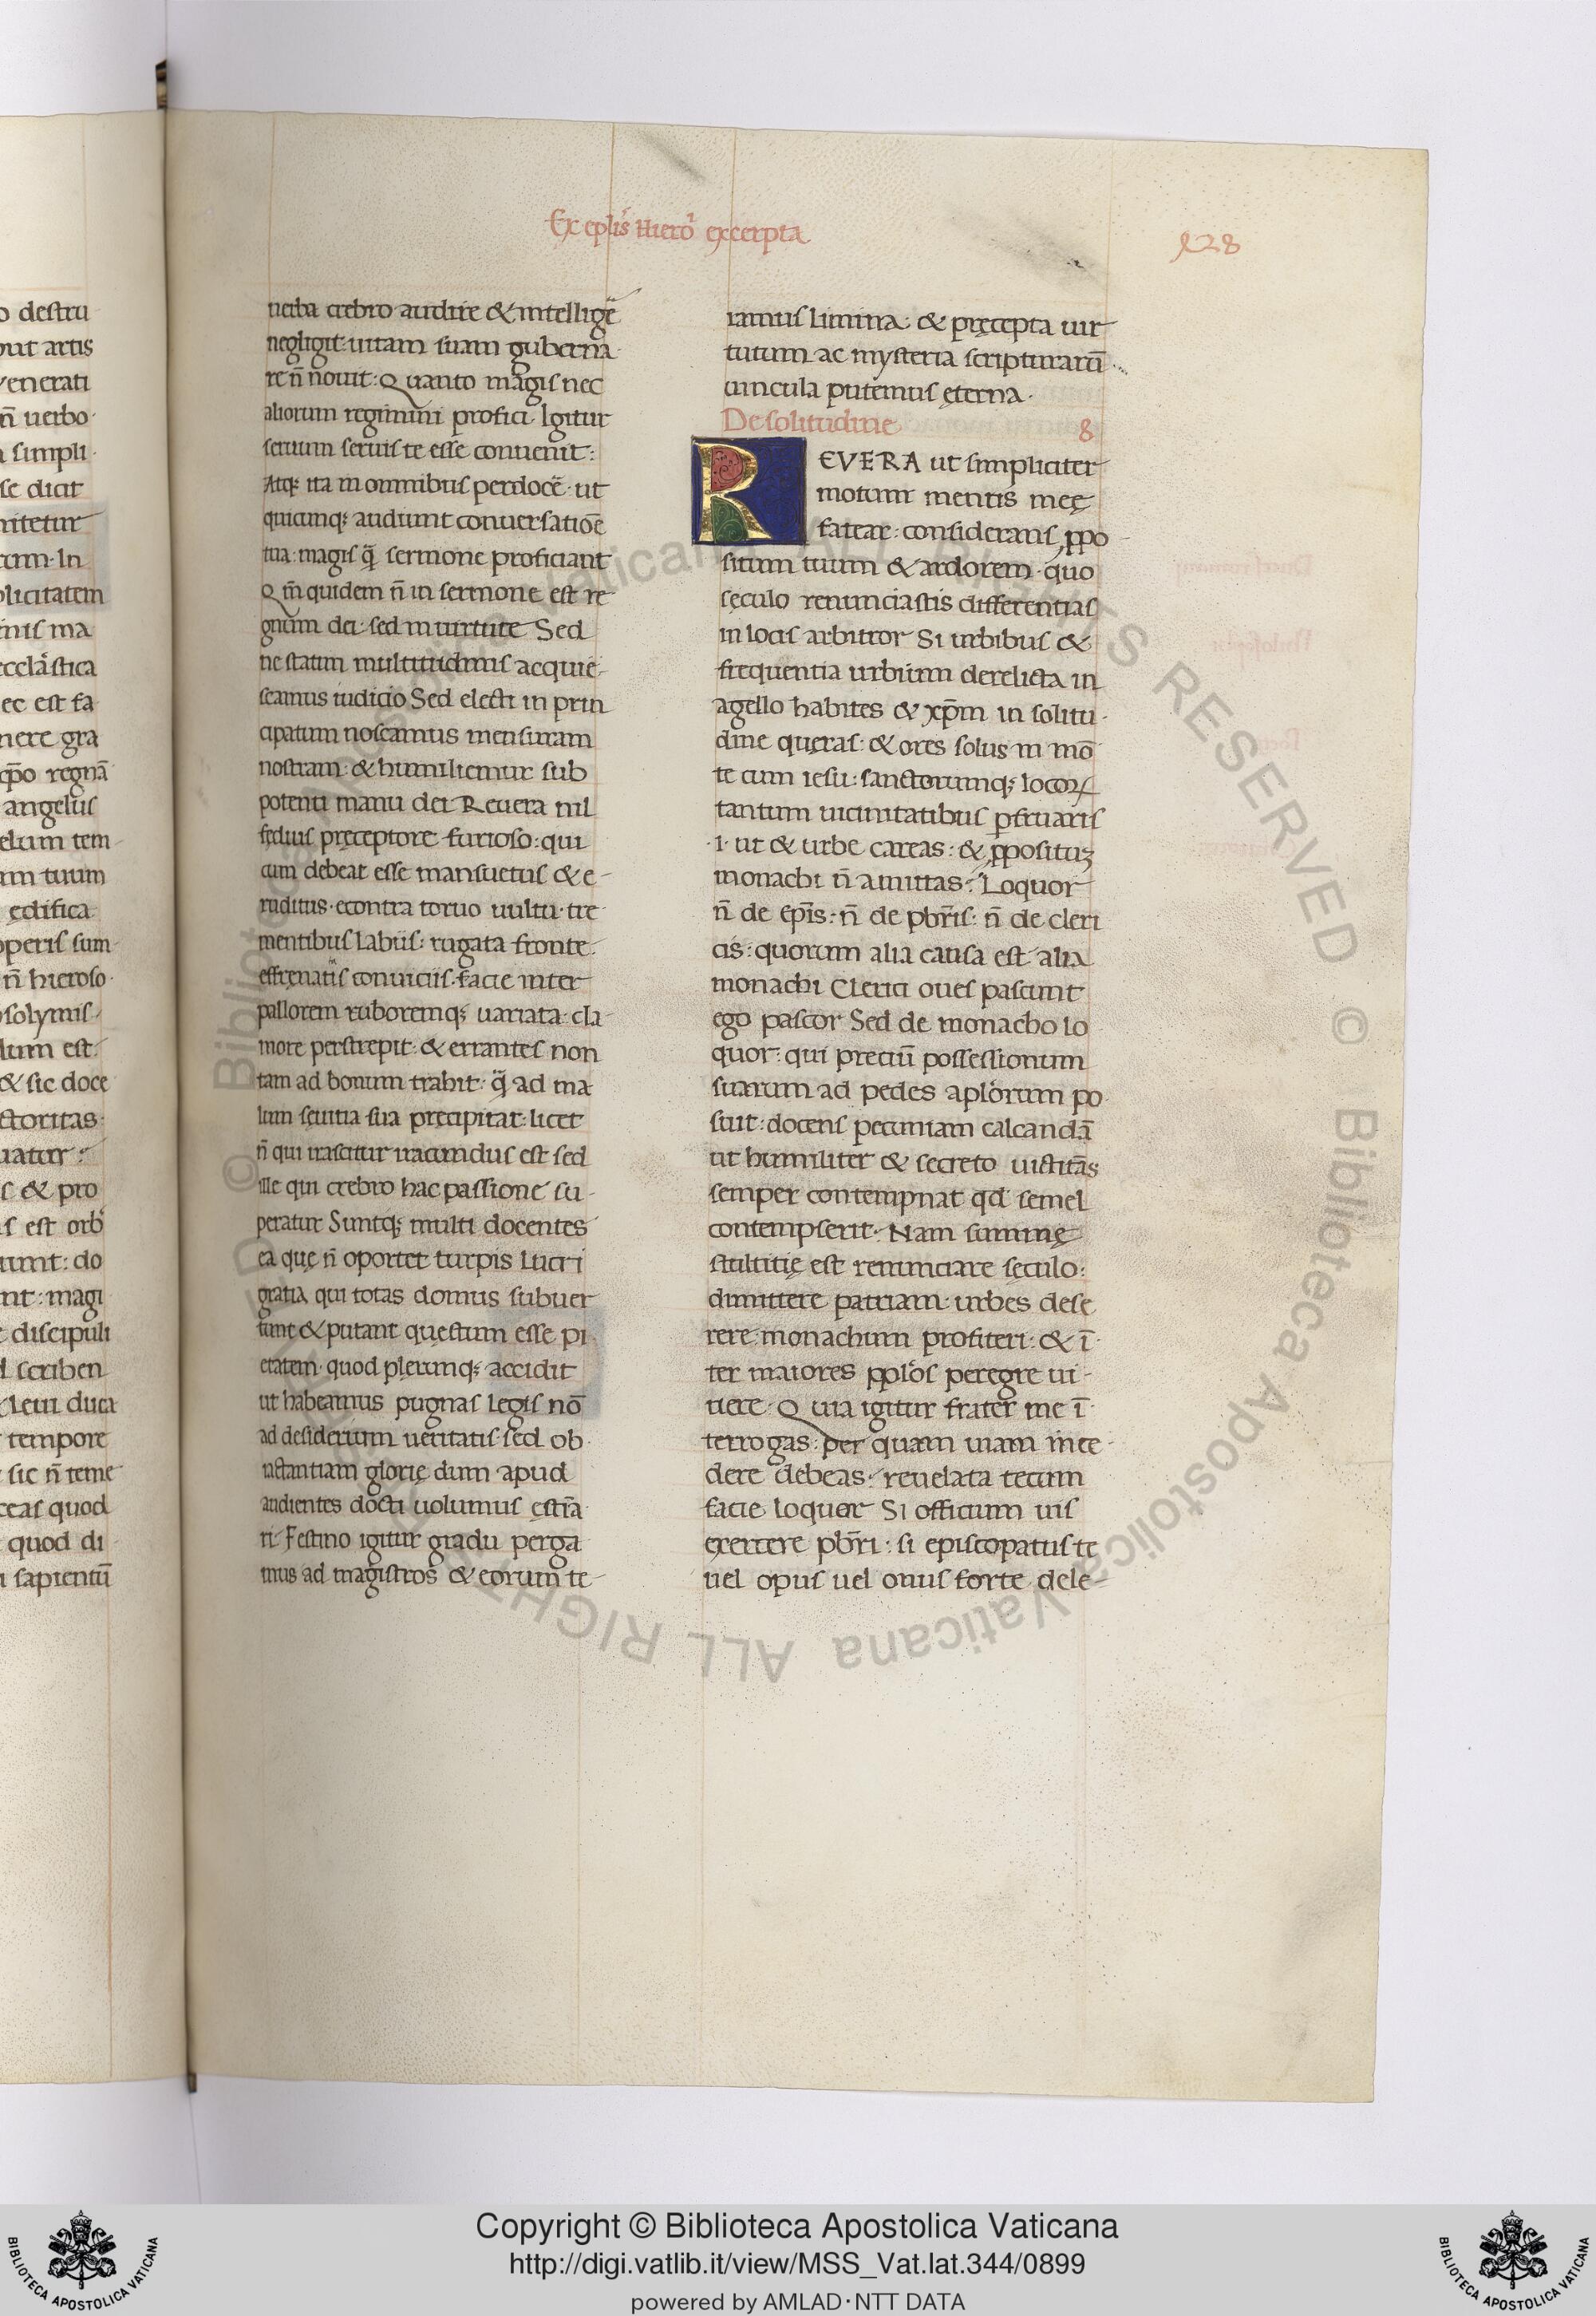 Ex eplis Hiero excerpta
428
uerba crebro audire & intelligē
negligit: uitam suam guberna
re n̄ nouit: Quanto magis nec
aliorum regimini profici· Igitur
seruum seruis te esse conuenit:
Atq; ita in omnibus perdocē· ut
quicunq; audiunt conuersatiōē
tua· magis q̄ sermone proficiant
Qm̄ quidem n̄ in sermone est re
gnum dei· sed in uirtute Sed
ne statim multitudinis acquie-
scamus iudicio Sed electi in prin
cipatum noscamus mensuram
nostram· & humiliemur sub
potenti manu dei Reuera nil
fędius pręceptore furioso: qui
cum debeat esse mansuetus & e-
ruditus· econtra toruo uultu· tre
mentibus labiis: rugata fronte·
effrenatis conuiciis· facie inter
pallorem ruboremq; uariata· cla-
more perstrepit· & errantes non
tam ad bonum trahit· q̄ ad ma
lum sęuitia sua pręcipitat: licet
n̄ qui irascitur iracundus est sed
ille qui crebro hac passione su-
peratur Suntq; multi docentes
ea quę n̄ oportet turpis lucri
gratia qui totas domus subuer
tunt & putant quęstum esse pi
etatem· quod plerunq; accidit
ut habeamus pugnas legis nō
ad desiderium ueritatis· sed ob
iactantiam glorię dum apud
audientes docti uolumus ęstīa
ri· Festino igitur gradu perga
mus ad magistros & eorum te-
ramus limina· & pręcepta uir
tutum ac mysteria scripturarū
uincula putemus ęterna·
De solitudine 8
REVERA ut simpliciter
motum mentis meę
fatear: considerans ꝓpo
situm tuum & ardorem· quo
sęculo renunciastis differentias
in locis arbitror Si urbibus &
frequentia urbium derelicta in
agello habites & xp̄m in solitu-
dine quęras: & ores solus in mō
te cum iesu: sanctorumq; locoꝝ
tantum uicinitatibus ꝑfruaris
·i· ut & urbe careas: & ꝓposituȝ
monachi n̄ amittas: Loquor
n̄ de epīs: n̄ de pbrīs: n̄ de cleri
cis: quorum alia causa est· alia
monachi Clerici oues pascunt
ego pascor Sed de monacho lo
quor: qui preciū possessionum
suarum ad pedes aplorum po
suit: docens pecuniam calcandā
ut humiliter & secreto uictitās
semper contempnat qd semel
contempserit· Nam summę
stultitię est renunciare sęculo:
dimittere patriam: urbes dese
rere: monachum profiteri: & ī-
ter maiores pplos peregre ui-
uere· Quia igitur frater me ī-
terrogas: per quam uiam ince-
dere debeas: reuelata tecum
facie loquor Si officium uis
exercere pbrī: si episcopatus te
uel opus uel onus forte dele-
o destru
put artis
uenerati
n̄ uerbo·
a simpli·
se dicit
nitetur
cum· In
plicitatem
inis ma
ecclastica
ec est fa
nere gra
xpō regnā
angelus
elum tem
am tuum
ędifica
operis sum
n̄ hieroso
osolymis
lum est·
& sic doce
ctoritas·
uatur:
s & pro
is est orb
unt: do
nt: magi
discipuli
d scriben
Leui duca
tempore
sic n̄ teme
ceas quod
quod di
i sapientū
© Biblioteca Apostolica Vaticana ALL RIGHTS RESERVED © Biblioteca Apostolica Vaticana ALL RIGHTS RESERVED
Copyright © Biblioteca Apostolica Vaticana
http://digi.vatlib.it/view/MSS_Vat.lat.344/0899
powered by AMLAD·NTT DATA
BIBLIOTECA APOSTOLICA VATICANA
BIBLIOTECA APOSTOLICA VATICANA